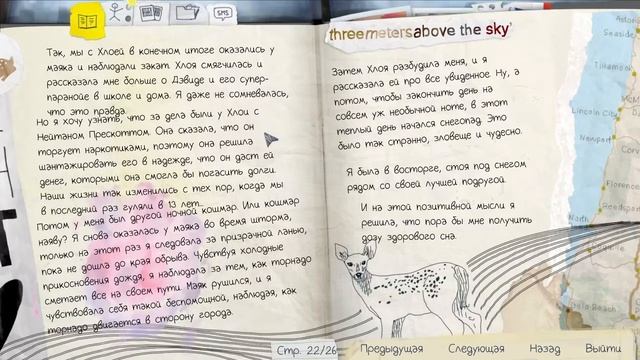 SMS
Так, мы с Хлоей в конечном итоге оказались у
маяка и наблюдали закат. Хлоя смягчилась и
рассказала мне больше о Дэвиде и его супер-
паранойе в школе и дома. Я даже не сомневалась,
что это правда.
Но я хочу узнать, что за дела были у Хлои с
Нейтаном Прескоттом. Она сказала, что он
торгует наркотиками, поэтому она решила
шантажировать его в надежде, что он даст ей
денег, которыми она смогла бы погасить долги.
Наши жизни так изменились с тех пор, когда мы
в последний раз гуляли в 13 лет...
Потом у меня был другой ночной кошмар. Или кошмар
наяву? Я снова оказалась у маяка во время шторма,
только на этот раз я следовала за призрачной ланью,
пока не дошла до края обрыва. Чувствуя холодные
прикосновения дождя, я наблюдала за тем, как торнадо
сметает все на своем пути. Маяк рушился, и я
чувствовала себя такой беспомощной, наблюдая, как
торнадо двигается в сторону города.
threemetersabove the sky
Затем Хлоя разбудила меня, и я
рассказала ей про все увиденное. Ну, а
потом, чтобы закончить день на
совсем уж необычной ноте, в этот
теплый день начался снегопад. Это
было так странно, зловеще и чудесно.
Я была в восторге, стоя под снегом
рядом со своей лучшей подругой.
И на этой позитивной мысли я
решила, что пора бы мне получить
дозу здорового сна.
Seaside
Tillamook
Lincoln City
Newport
Corvallis
Florence
Reedsport
North
Стр. 22/26
Предыдущая
Следующая
Назад
Выйти